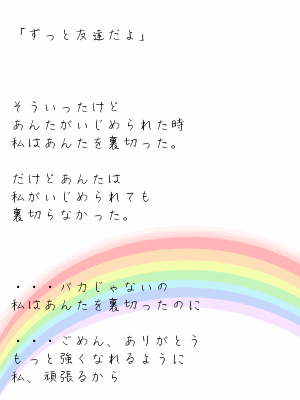 「ずっと友達だよ」
そういったけど
あんたがいじめられた時
私はあんたを裏切った。
だけどあんたは
私がいじめられても
裏切らなかった。
・・・バカじゃないの
私はあんたを裏切ったのに
・・・ごめん、ありがとう
もっと強くなれるように
私、頑張るから